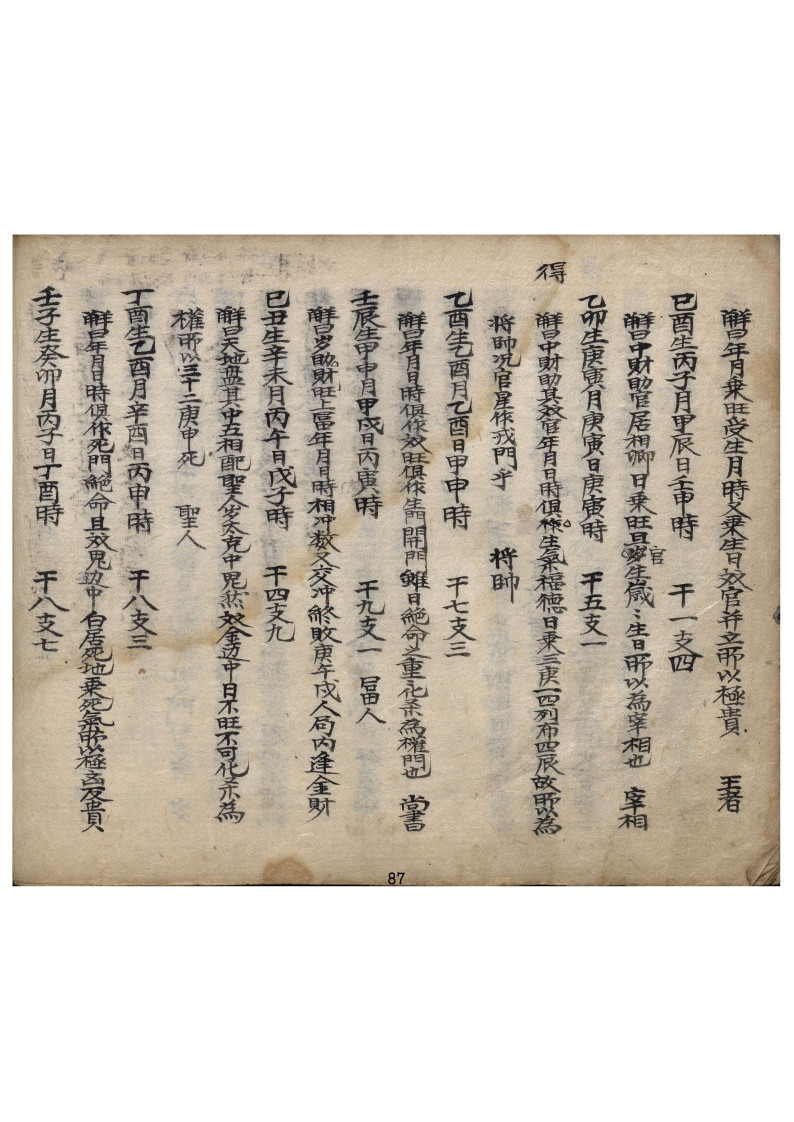 觧曰年月乗旺受生月時又乗生日效官并立所以極貴　王者
巳酉生丙子月甲辰日壬申時　干一支四
觧曰中財助官居相卿日乗旺旦岁生歲〻生日所以為宰相也　宰相
官
乙卯生庚寅月庚寅日庚寅時　干五支一
得
觧曰中財助其效官年月日時俱作生氣福德日乗三庚一四列布四辰故所以為
将帥况官星作戎門乎　将帥
乙酉生乙酉月乙酉日甲申時　干七支三
觧曰年月日時俱作效旺俱作生門開門雖日絕命之重〻化杀為權門也　尚書
壬辰生甲申月甲戌日丙寅時　干九支一　冨人
觧曰岁助財旺上冨年月日時相冲数又交冲終敗庚午戌人局内逢金財
巳丑生辛未月丙午日戊子時　干四支九
觧曰天地盤其中五相配聖人岁太克中鬼然效金边中日不旺不可化杀為
權所以三十二庚申死　聖人
丁酉生乙酉月辛酉日丙申時　干八支三
觧曰年月日時俱作死門絕命且效鬼边中白居死地乗死氣所以極凶反貴
壬子生癸卯月丙子日丁酉時　干八支七
87